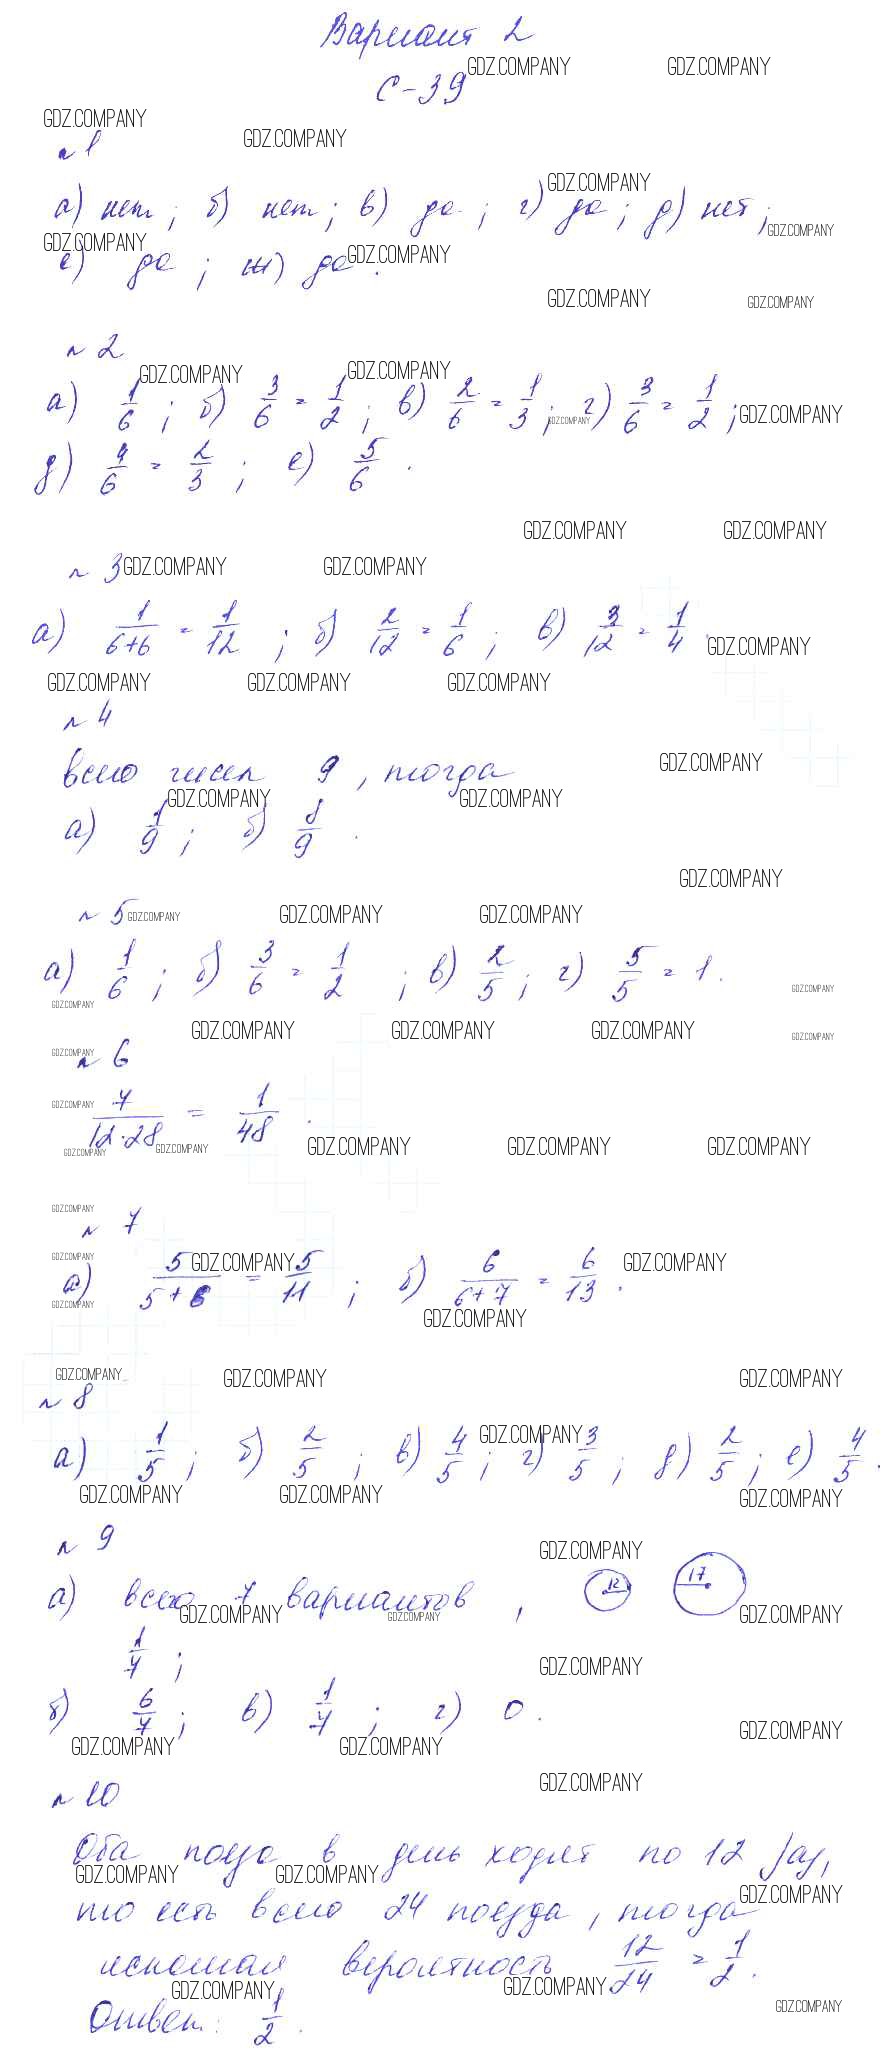 Вариант 2
С-39
GDZ.COMPANY
№1
а) нет; б) нет; в) да; г) да; д) нет;
е) да; ж) да.
№2
а) 1/6; б) 3/6 = 1/2; в) 2/6 = 1/3; г) 3/6 = 1/2;
д) 4/6 = 2/3; е) 5/6.
№3
а) 1/(6+6) = 1/12; б) 2/12 = 1/6; в) 3/12 = 1/4.
№4
всего чисел 9, тогда
а) 1/9; б) 8/9.
№5
а) 1/6; б) 3/6 = 1/2; в) 2/5; г) 5/5 = 1.
№6
7/(12·28) = 1/48.
№7
а) 5/(5+6) = 5/11; б) 6/(6+7) = 6/13.
№8
а) 1/5; б) 2/5; в) 4/5; г) 3/5; д) 2/5; е) 4/5.
№9
а) всего 7 вариантов, 12 17
1/7;
б) 6/7; в) 1/7; г) 0.
№10
Оба поезда в день ходят по 12 раз,
то есть всего 24 поезда, тогда
искомая вероятность 12/24 = 1/2.
Ответ: 1/2.